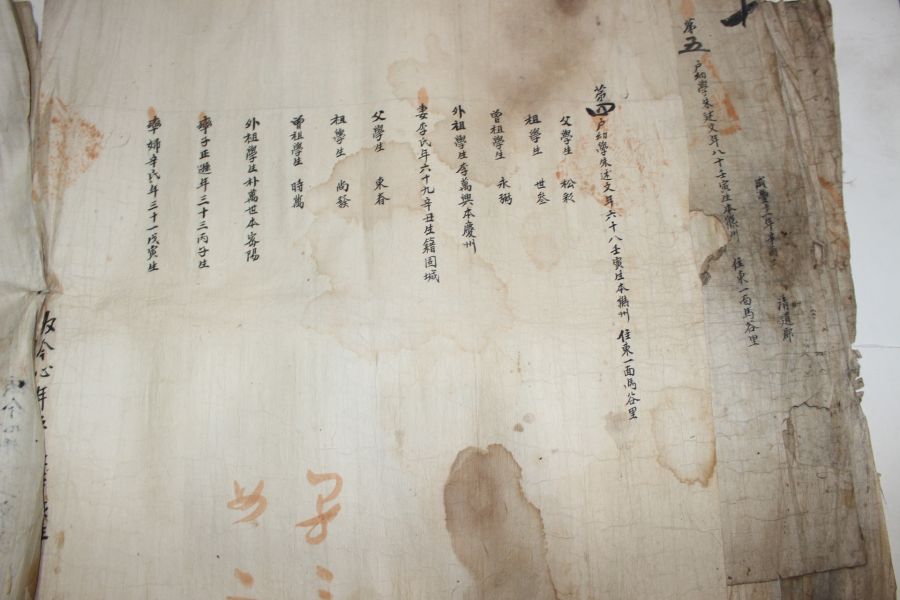 咸豐十一年 清道郡
第五戶幼學朱述文年八十壬寅生本熊州 住東一面馬谷里
第四戶幼學朱述文年六十八壬寅生本熊州 住東一面馬谷里
父學生 松彩
祖學生 世參
曾祖學生 永弼
外祖學生李萬興本慶州
妻李氏年六十九辛丑生籍固城
父學生 東春
祖學生 尚發
曾祖學生 時萬
外祖學生朴萬世本密陽
率子 年三十三丙子生
率婦辛氏年三十一戊寅生